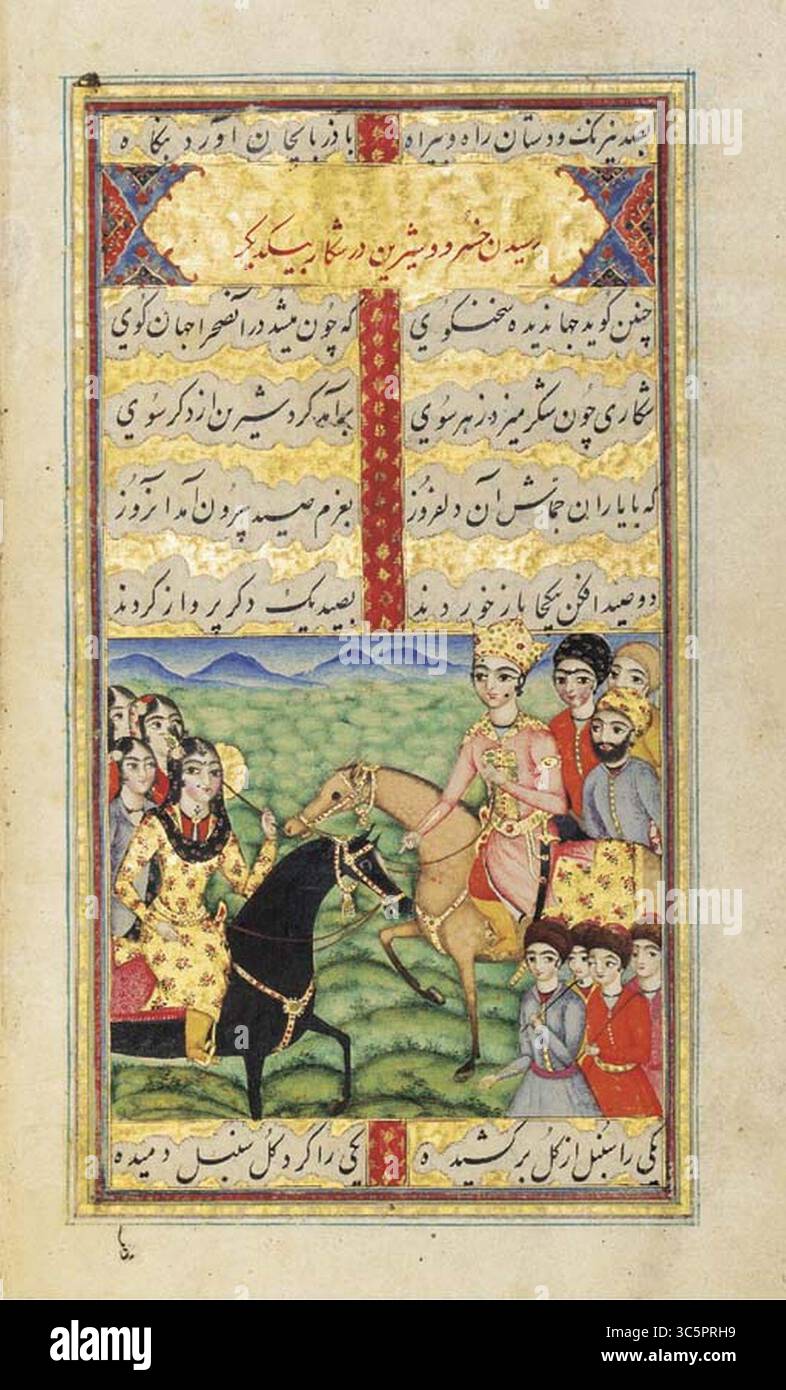 بصد نیرنک و دستان راه و بیراه
باذربایجان اورد بنکاه
رسیدن خسرو و شیرین در شکار بیکدیکر
چنین کوید جهاندیده سخنکوی
که چون میشد در انصحرا جهان کوی
شکاری چون شکر میزد زهر سوی
برآمد کرد شیرین از دکر سوی
که با یاران جماش آن دلفروز
بعزم صید بیرون آمد انروز
دو صید افکن بیکجا باز خوردند
بصید یک دکر پرواز کردند
یکی را سنبل از کل بر کشیده
یکی را کرد کل سنبل دمیده
alamy
Image ID: 3C5PRH9
www.alamy.com